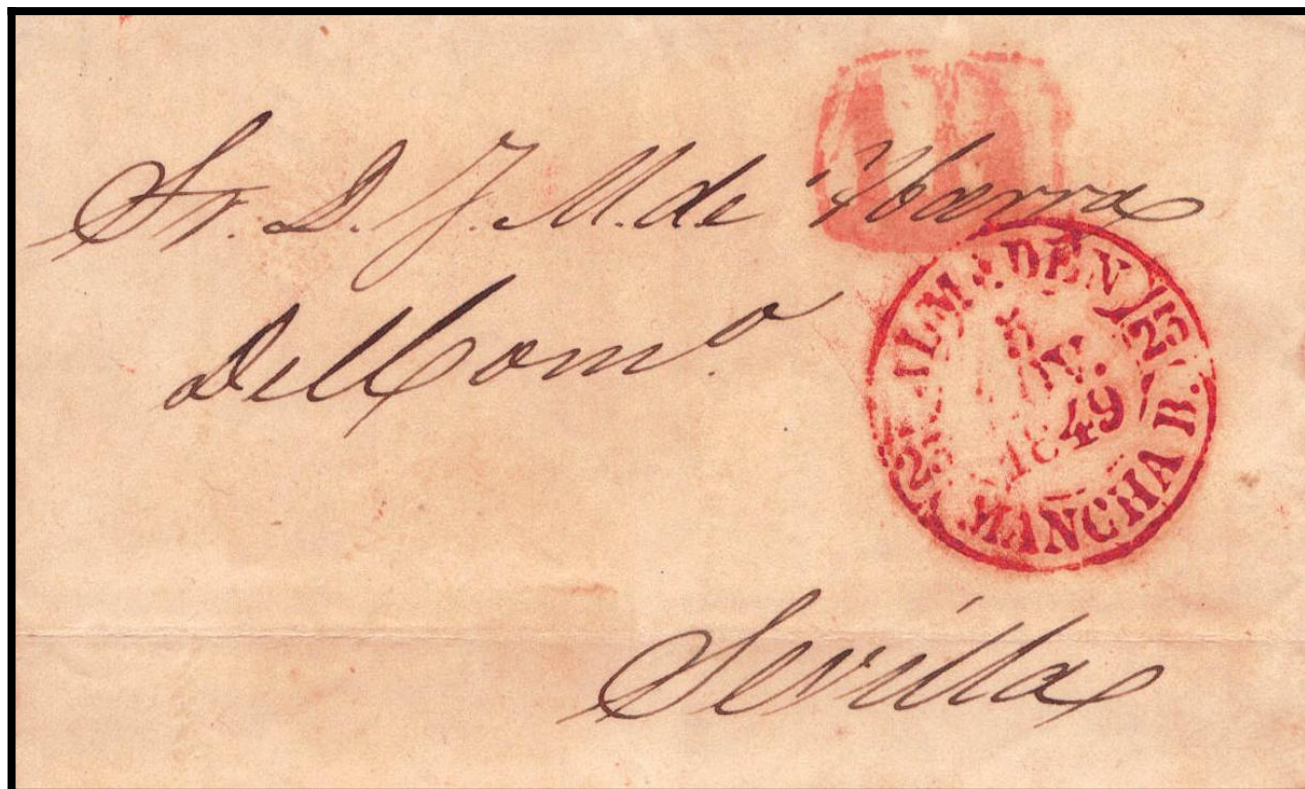 Sr. D. J. M. de Ybarra
Del Comº.
ALMADEN
25
25
1849
MANCHA B.
Sevilla